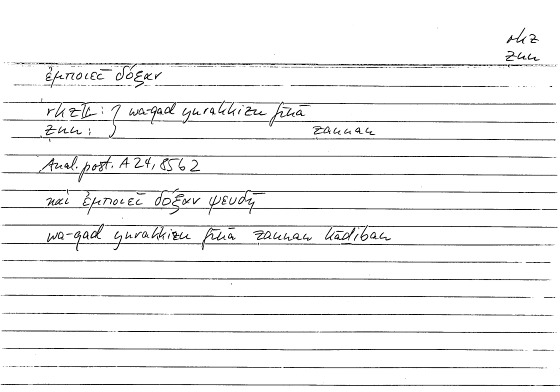 rkz
ẓnn
ἐμποιεῖ δόξαν
rkz II: } wa-qad yurakkizu fīnā
ẓnn: ẓannan
Anal. post. A 24, 85b2
καὶ ἐμποιεῖ δόξαν ψευδῆ
wa-qad yurakkizu fīnā ẓannan kāḏiban